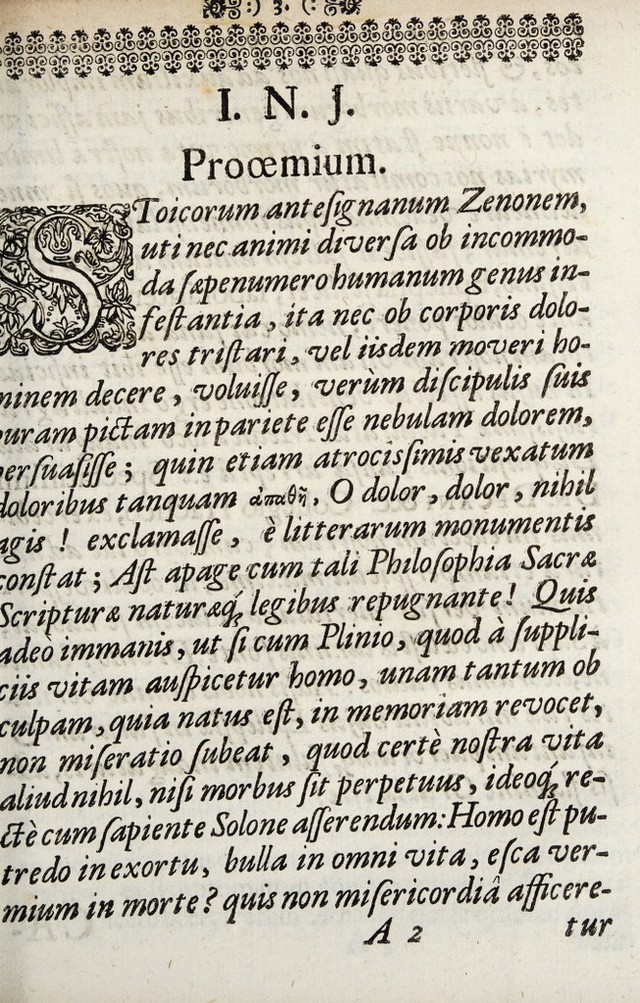 :) 3. (:
I. N. J.
Proœmium.
SToicorum anteſignanum Zenonem,
uti nec animi diverſa ob incommo-
da ſæpenumero humanum genus in-
feſtantia, ita nec ob corporis dolo-
res triſtari, vel iisdem moveri ho-
minem decere, voluiſſe, verùm diſcipulis ſuis
puram pictam in pariete eſſe nebulam dolorem,
perſuaſiſſe; quin etiam atrocisſimis vexatum
doloribus tanquam ἀπαθῆ, O dolor, dolor, nihil
agis ! exclamaſſe, è litterarum monumentis
conſtat; Aſt apage cum tali Philoſophia Sacræ
Scripturæ naturæq́ꝫ legibus repugnante! Quis
adeò immanis, ut ſi cum Plinio, quod à ſuppli-
ciis vitam auſpicetur homo, unam tantum ob
culpam, quia natus eſt, in memoriam revocet,
non miſeratio ſubeat, quod certè noſtra vita
aliud nihil, niſi morbus ſit perpetuus, ideoq́ꝫ re-
ctè cum ſapiente Solone aſſerendum: Homo eſt pu-
tredo in exortu, bulla in omni vita, eſca ver-
mium in morte? quis non miſericordiâ afficere-
A 2 tur